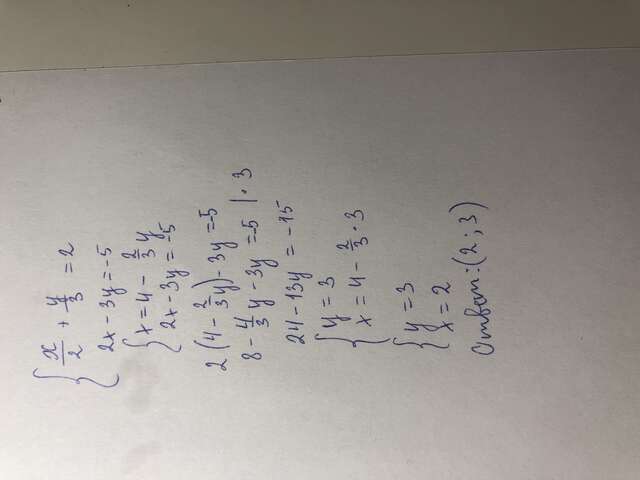 { x/2 + y/3 = 2
2x - 3y = -5
{ x = 4 - 2/3 y
2x - 3y = -5
2(4 - 2/3 y) - 3y = -5
8 - 4/3 y - 3y = -5 | · 3
24 - 13y = -15
{ y = 3
x = 4 - 2/3 · 3
{ y = 3
x = 2
Ответ: (2; 3)